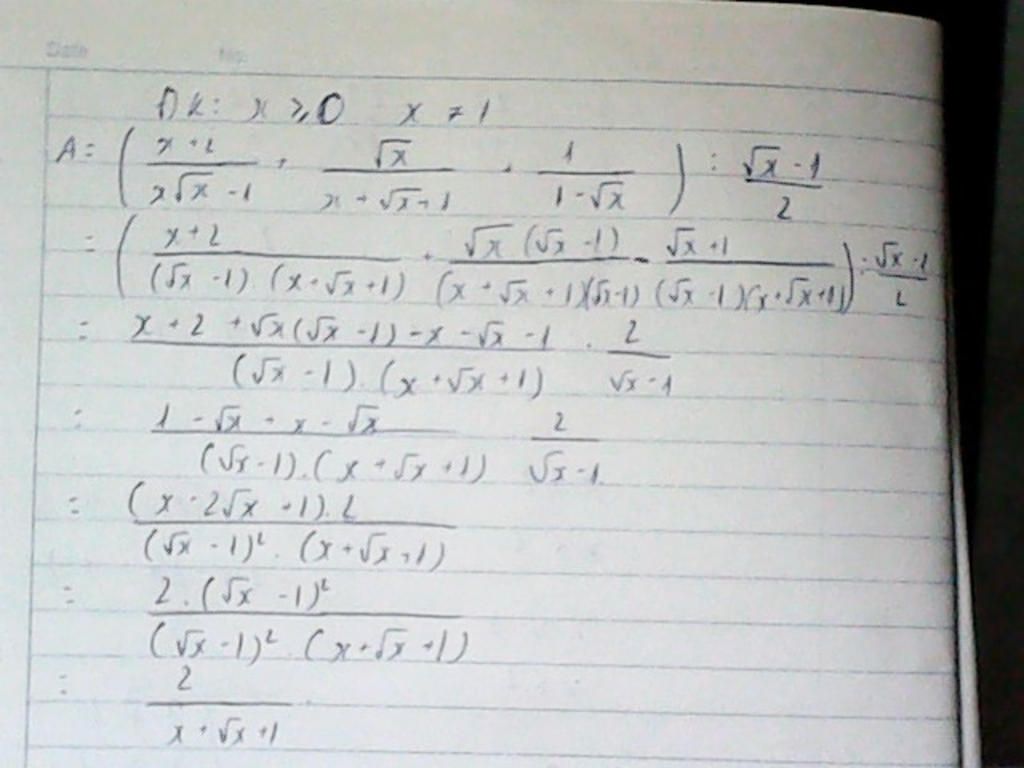 Date No.
ĐK: x ≥ 0 x ≠ 1
A = ( (x+2)/(x√x - 1) + √x/(x+√x+1) + 1/(1-√x) ) : (√x - 1)/2
= ( (x+2)/((√x - 1).(x+√x+1)) + √x(√x - 1)/((x+√x+1)(√x-1)) - (√x+1)/((√x - 1)(x+√x+1)) ) : (√x - 1)/2
= (x+2+√x(√x - 1) - x - √x - 1)/((√x - 1).(x+√x+1)) . 2/(√x - 1)
= (1 - √x + x - √x)/((√x-1).(x+√x+1)) 2/(√x-1)
= ((x - 2√x + 1).2)/((√x - 1)².(x+√x+1))
= (2.(√x - 1)²)/((√x - 1)².(x+√x+1))
= 2/(x+√x+1)